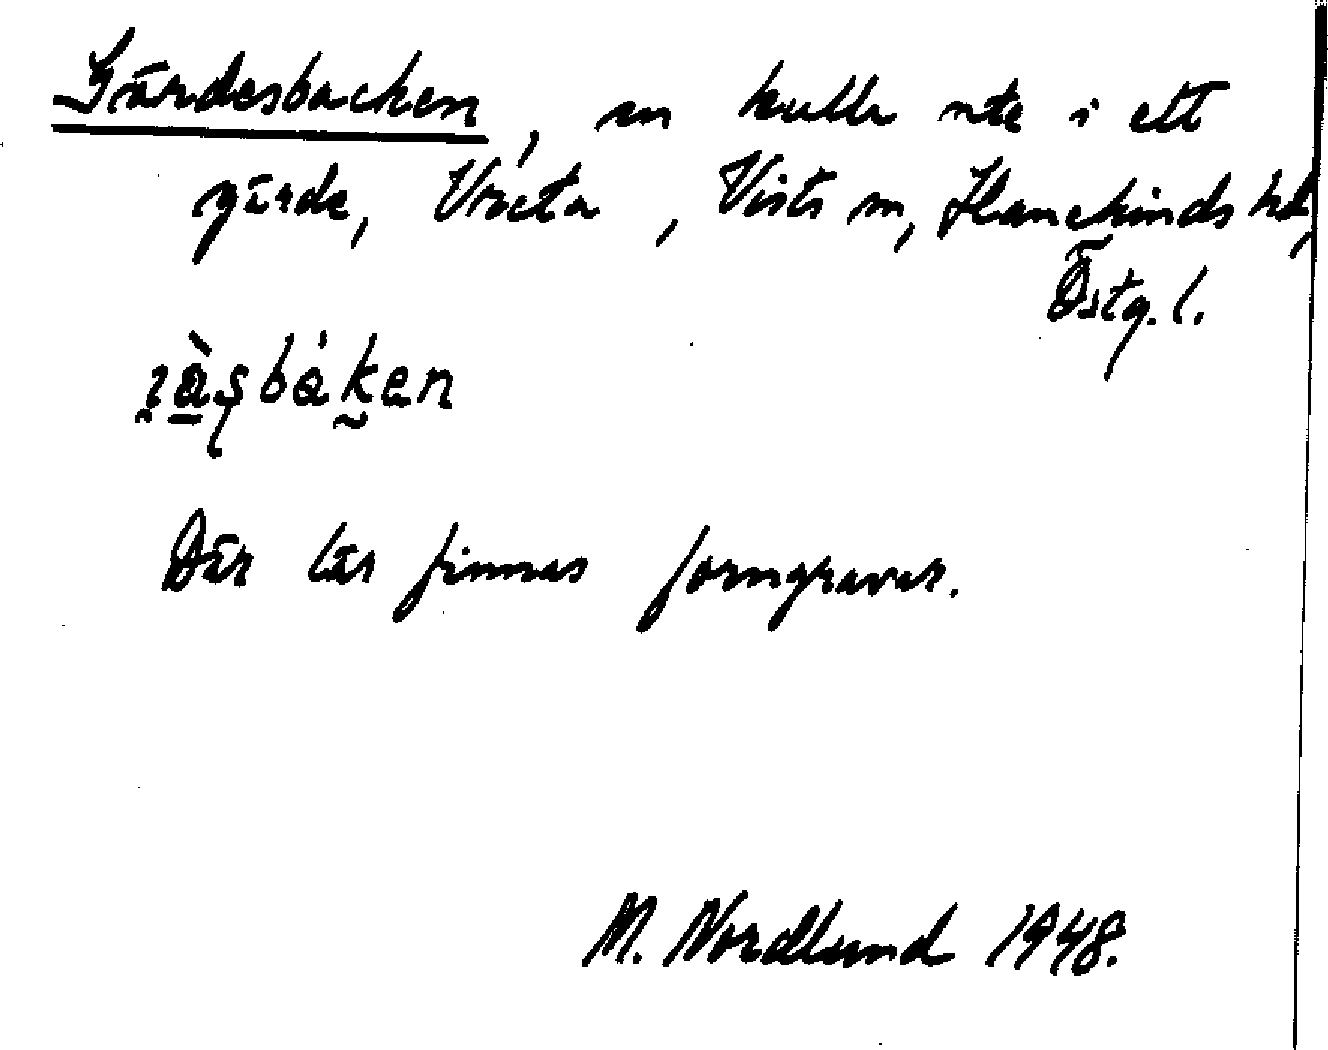 Gärdesbacken, en kulle ute i ett
gärde, Vreta, Vists sn, Hanekinds hd,
Östg. l.
Där lär finnas forngravar.
M. Nordlund 1948.